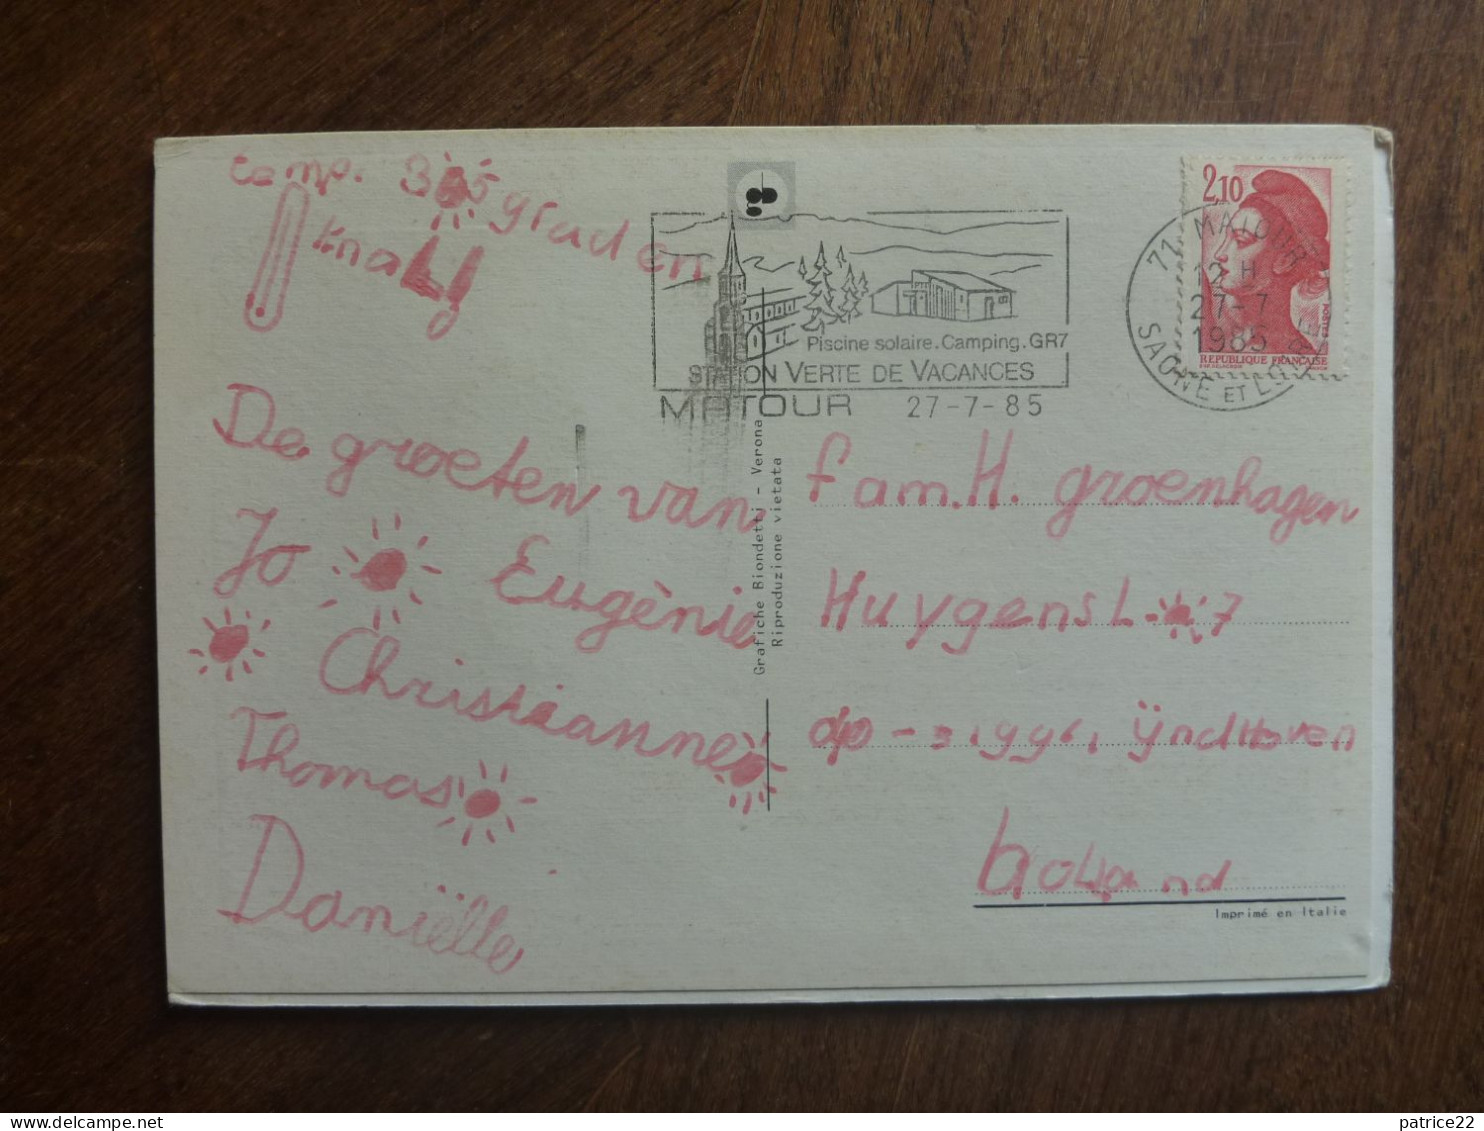 temp. 35 graden
knal
De groeten van
Jo Eugènie
Christianne
Thomas
Daniëlle
Piscine solaire.Camping.GR7
STATION VERTE DE VACANCES
MATOUR 27-7-85
71 MATOUR
12 H
27-7
1985
SAONE ET LOIRE
2,10
POSTES
REPUBLIQUE FRANÇAISE
Grafiche Biondetti - Verona
Riproduzione vietata
fam. H. groenhagen
Huygensl. 7
ÿndHoven
holland
Imprimé en Italie
patrice22